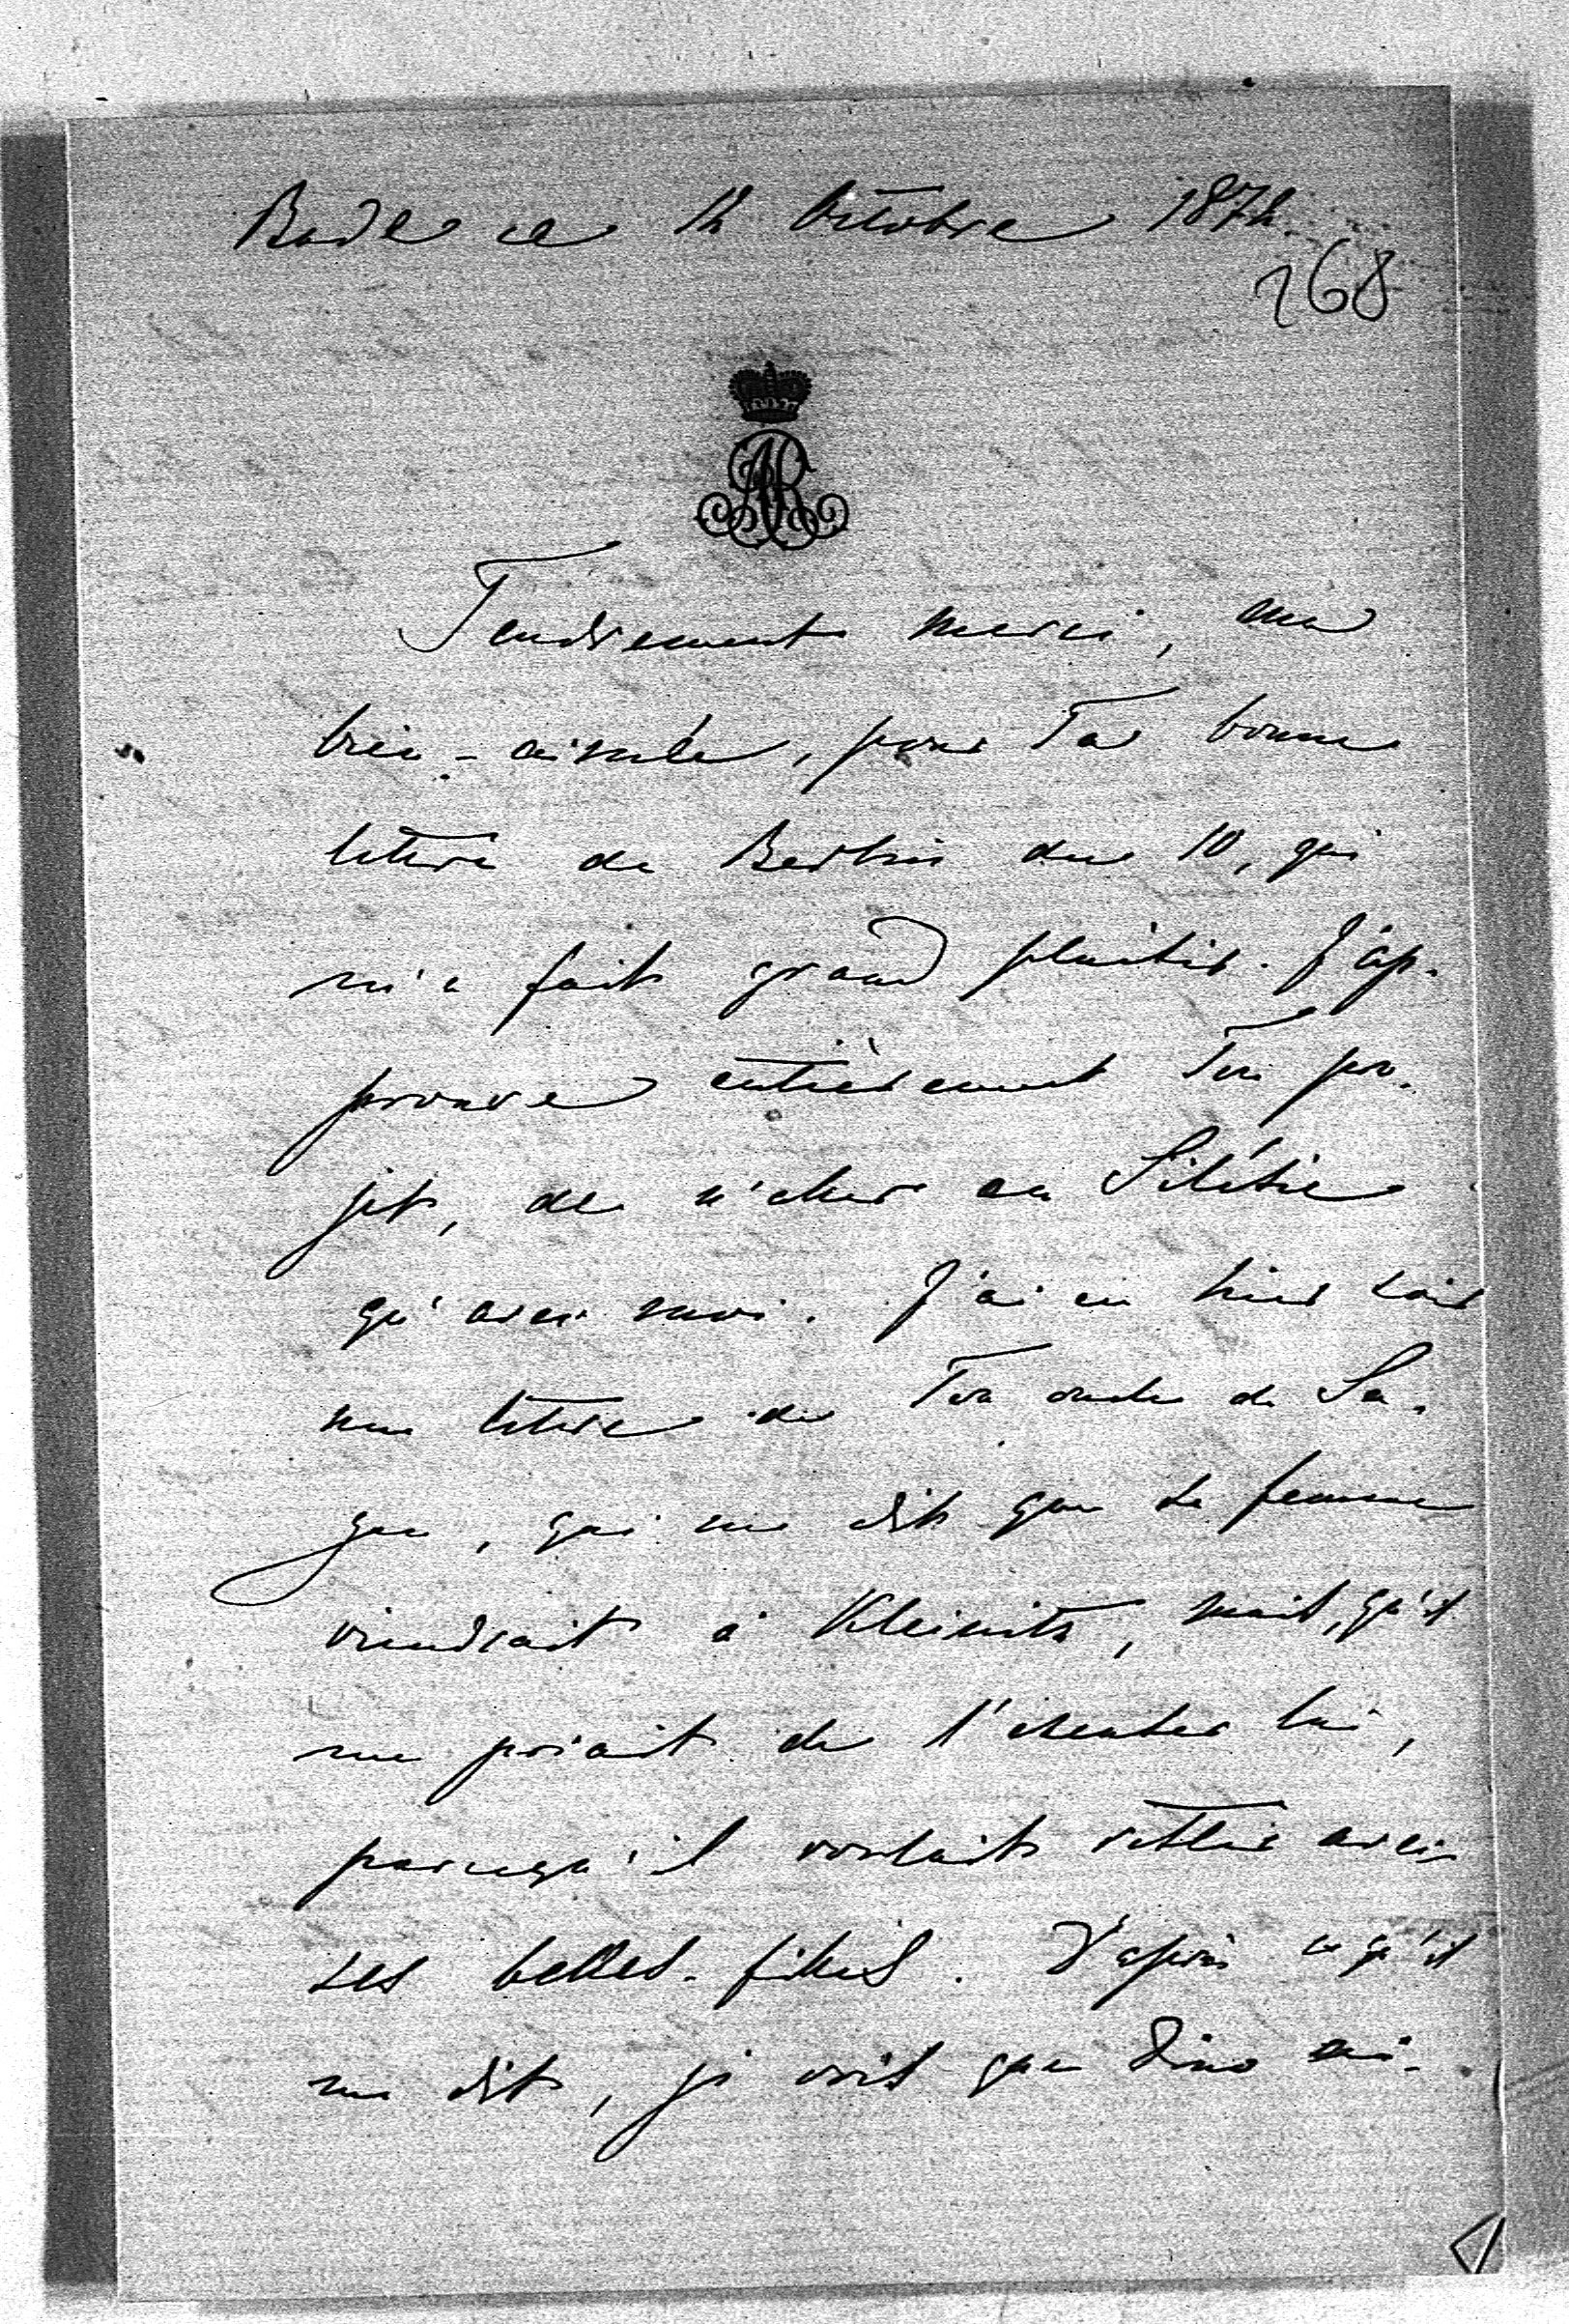 Bade ce 12 Octobre 1872.
268
AR
Tendrement merci, ma
bien-aimée, pour Ta bonne
lettre de Berlin du 10, qui
m'a fait grand plaisir. J'ap-
prouve entièrement Ton pro-
jet, de n'aller en Silésie
qu'avec moi. J'ai eu hier soir
une lettre de Ton oncle de Sa-
gan, qui me dit que sa femme
viendrait à Kleinitz, mais, qu'il
me priait de l'excuser lui,
parcequ'il voulait rester avec
ses belles-filles. D'après ce qu'il
me dit, je vois que Dino ai-